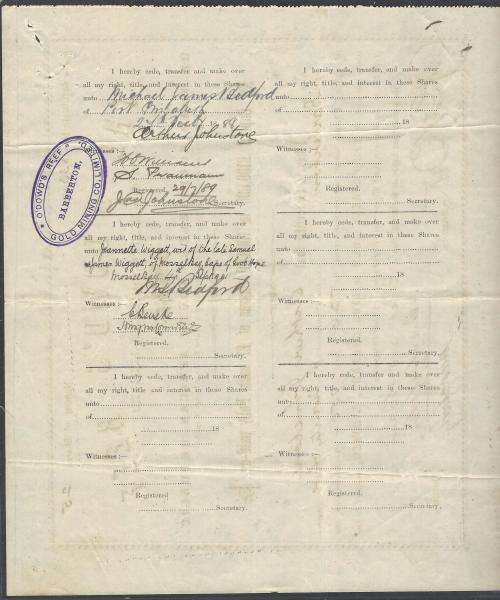 I hereby cede, transfer, and make over
all my right, title, and interest in these Shares
unto Michael James Bedford
of Port Elizabeth
18 89
Arthur Johnstone
Witnesses :—
Registered, 29/7/89
Jas Johnstone Secretary.
"O'DOWD'S REEF" GOLD MINING CO. LIMITED
BARBERTON.
I hereby cede, transfer, and make over
all my right, title, and interest in these Shares
unto Jeannette Wiggett, wid of the late Samuel
James Wiggett, of Mosselbay, Cape of Good Hope
Mosselbay
M J Bedford
Witnesses :—
Registered.
Secretary.
I hereby cede, transfer, and make over
all my right, title and interest in these Shares
unto
of
18
Witnesses :—
Registered
Secretary.
I hereby cede, transfer, and make over
all my right, title, and interest in these Shares
unto
of
18
Witnesses :—
Registered.
Secretary.
I hereby cede, transfer, and make over
all my right, title, and interest in these Shares
unto
of
18
Witnesses :—
Registered.
Secretary.
I hereby cede, transfer, and make over
all my right, title, and interest in these Shares
unto
of
18
Witnesses :—
Registered
Secretary.